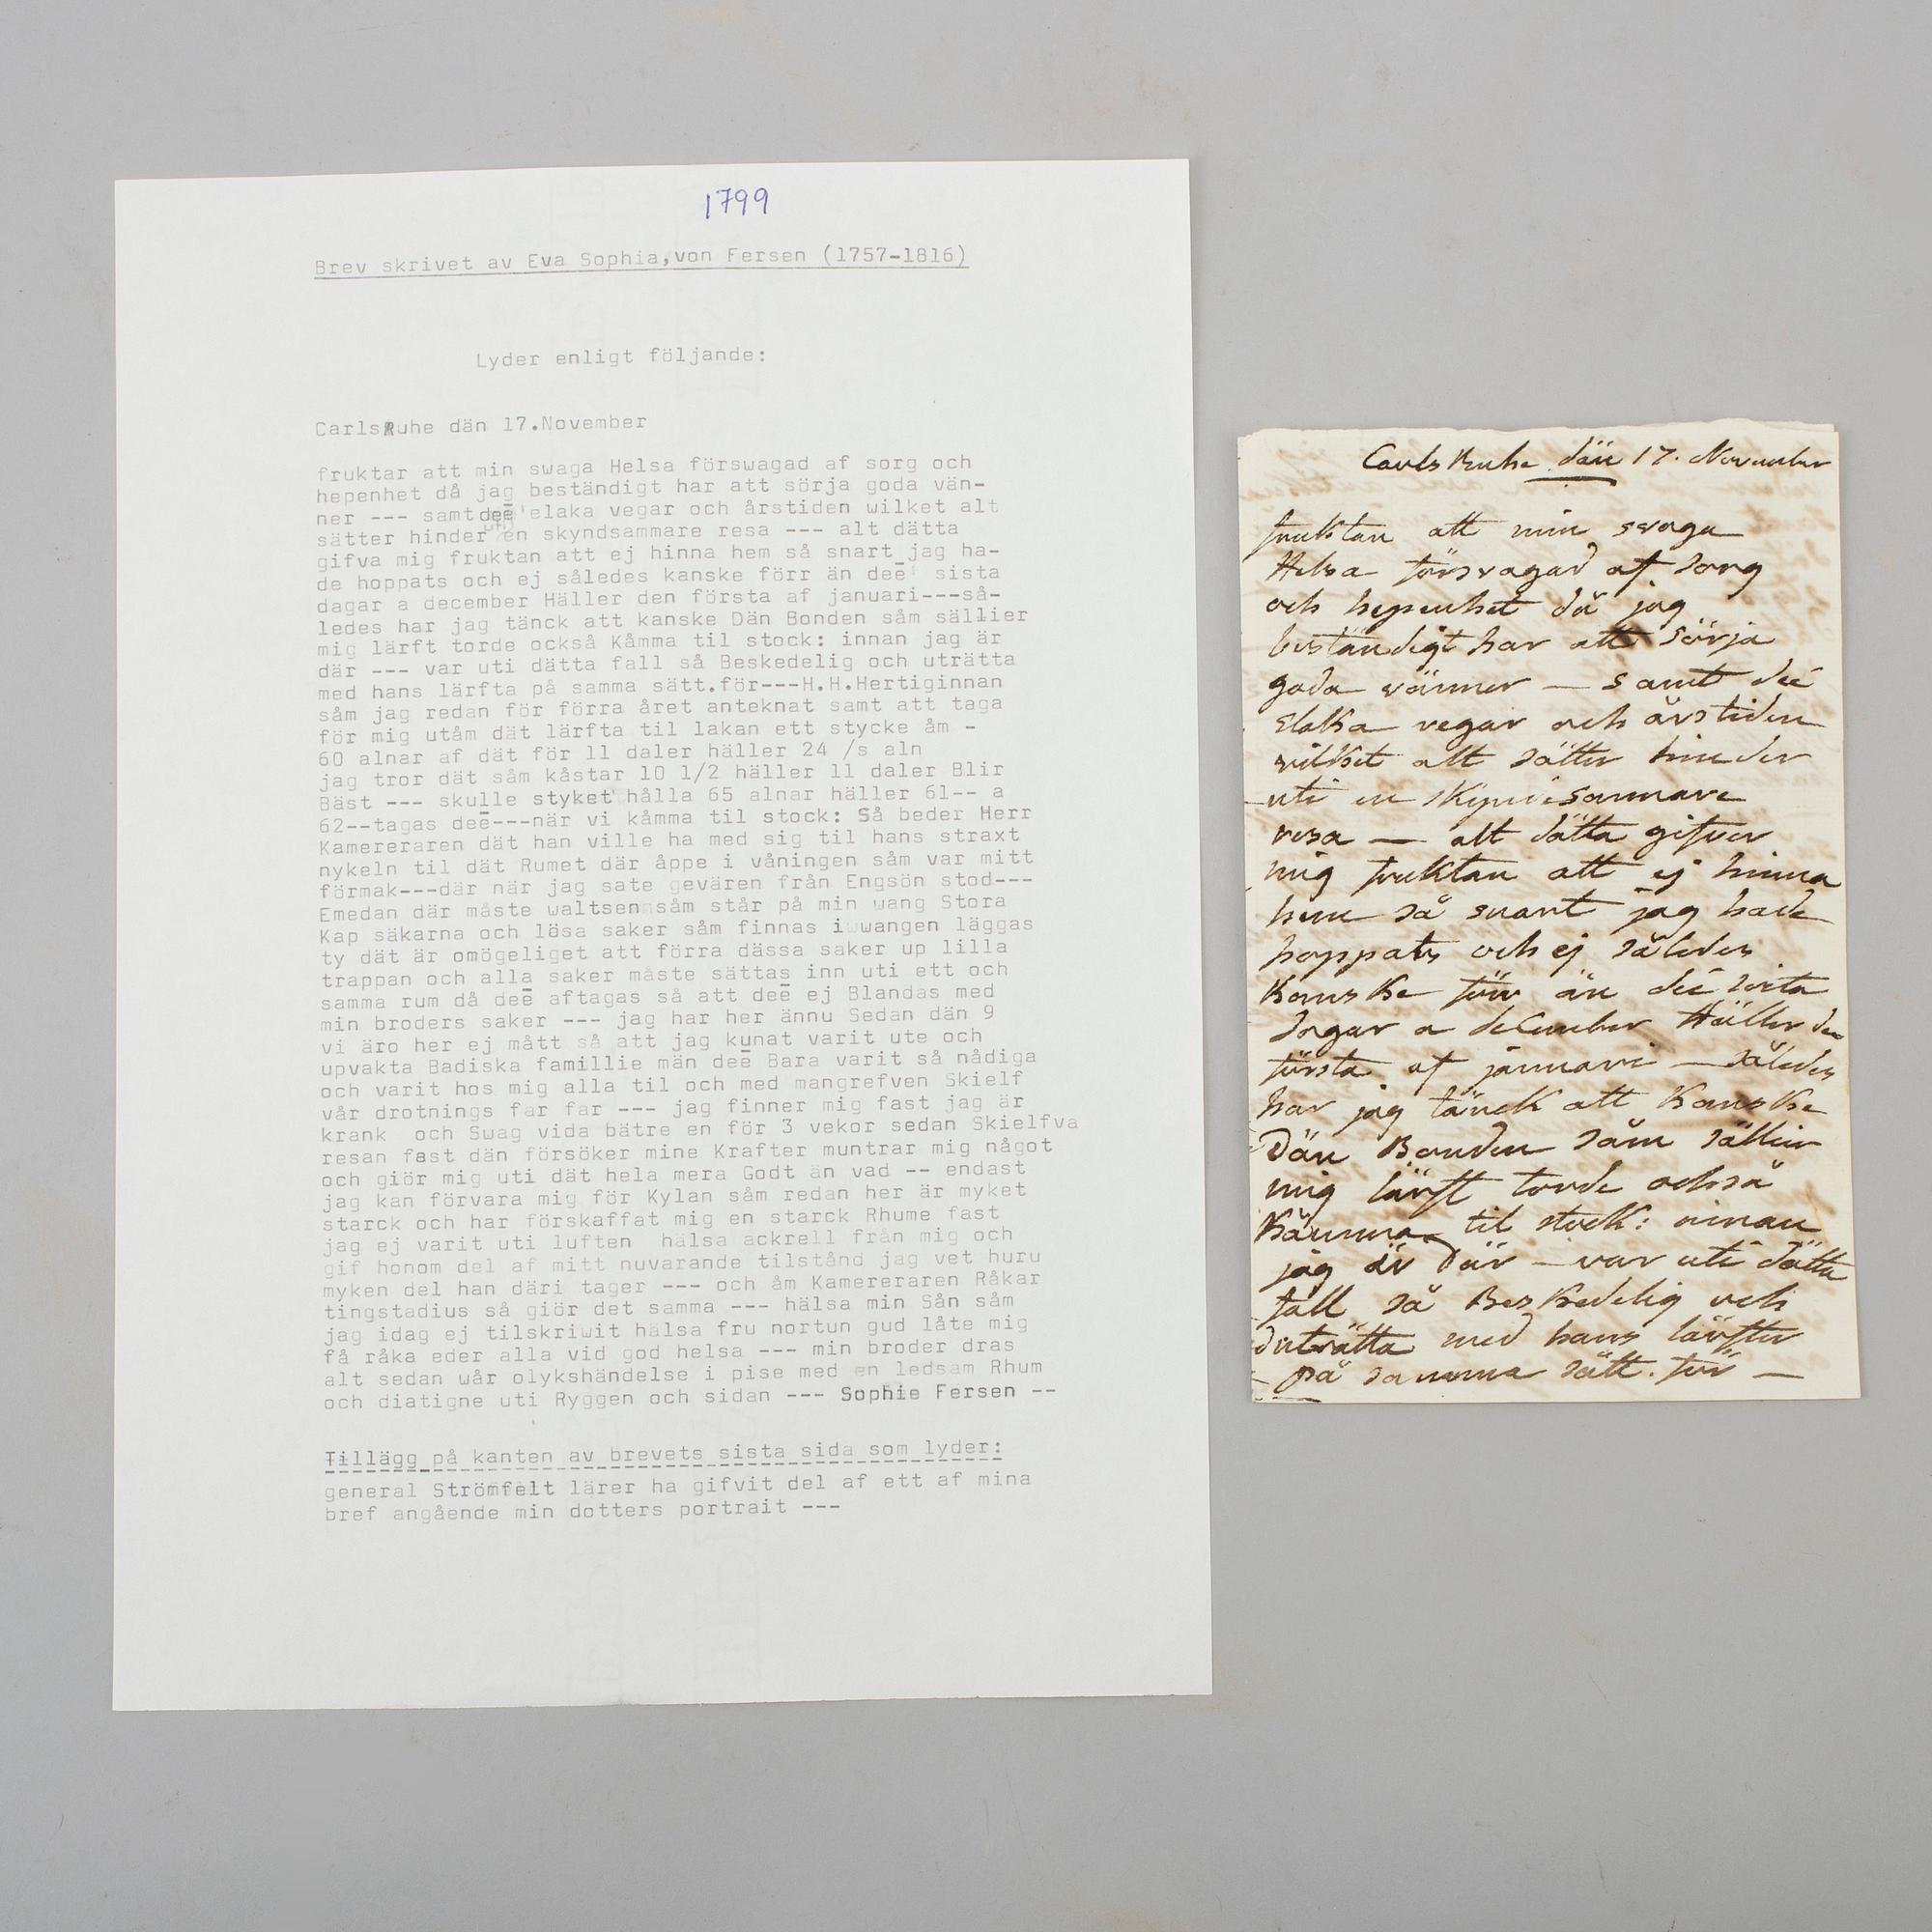 1799
Brev skrivet av Eva Sophia,von Fersen (1757-1816)
Lyder enligt följande:
CarlsRuhe dän 17.November
fruktar att min swaga Helsa förswagad af sorg och
hepenhet då jag beständigt har att sörja goda vän-
ner --- samt deē elaka vegar och årstiden wilket alt
sätter hinder en skyndsammare resa --- alt dätta
gifva mig fruktan att ej hinna hem så snart jag ha-
de hoppats och ej således kanske förr än deē sista
dagar a december Häller den första af januari---så-
ledes har jag tänck att kanske Dän Bonden såm sällier
mig lärft torde också Kåmma til stock: innan jag är
där --- var uti dätta fall så Beskedelig och uträtta
med hans lärfta på samma sätt.för---H.H.Hertiginnan
såm jag redan för förra året anteknat samt att taga
för mig utåm dät lärfta til lakan ett stycke åm -
60 alnar af dät för 11 daler häller 24 /s aln
jag tror dät såm kåstar 10 1/2 häller 11 daler Blir
Bäst --- skulle styket hålla 65 alnar häller 61-- a
62--tagas deē---när vi kåmma til stock: Så beder Herr
Kamereraren dät han ville ha med sig til hans straxt
nykeln til dät Rumet där åppe i våningen såm var mitt
förmak---där när jag sate gevären från Engsön stod---
Emedan där måste waltsen såm står på min wang Stora
Kap säkarna och lösa saker såm finnas i wangen läggas
ty dät är omögeliget att förra dässa saker up lilla
trappan och alla saker måste sättas inn uti ett och
samma rum då deē aftagas så att deē ej Blandas med
min broders saker --- jag har her ännu Sedan dän 9
vi äro her ej mått så att jag kunat varit ute och
upvakta Badiska famillie män deē Bara varit så nådiga
och varit hos mig alla til och med mangrefven Skielf
vår drotnings far far --- jag finner mig fast jag är
krank och Swag vida bätre en för 3 vekor sedan Skielfva
resan fast dän försöker mine Krafter muntrar mig något
och giör mig uti dät hela mera Godt än vad -- endast
jag kan förvara mig för Kylan såm redan her är myket
starck och har förskaffat mig en starck Rhume fast
jag ej varit uti luften hälsa ackrell från mig och
gif honom del af mitt nuvarande tilstånd jag vet huru
myken del han däri tager --- och åm Kamereraren Råkar
tingstadius så giör det samma --- hälsa min Sån såm
jag idag ej tilskriwit hälsa fru nortun gud låte mig
få råka eder alla vid god helsa --- min broder dras
alt sedan wår olykshändelse i pise med en ledsam Rhum
och diatigne uti Ryggen och sidan --- Sophie Fersen --
Tillägg på kanten av brevets sista sida som lyder:
general Strömfelt lärer ha gifvit del af ett af mina
bref angående min dotters portrait ---
Carls Ruhe dän 17. November
fruktan att min svaga
Helsa försvagad af sorg
och hepenhet då jag
beständigt har att sörja
goda vänner — samt deē
elaka vegar och årstiden
vilket alt sätter hinder
uti en skyndsammare
resa — alt dätta gifver
mig fruktan att ej hinna
hem så snart jag hade
hoppats och ej således
Kanske förr än deē sista
dagar a december Häller den
första af januari — således
har jag tänck att Kanske
Dän Bonden såm sällier
mig lärft torde också
Kåmma til stock: innan
jag är där — var uti dätta
fall så Beskedelig och
uträtta med hans lärfter
på samma sätt. för —